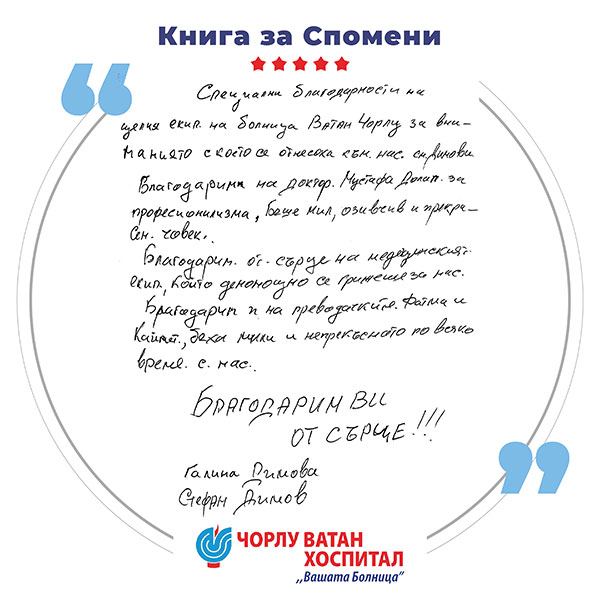 Книга за Спомени
Специални благодарности на
целия екип. на болница Ватан Чорлу за вни-
манието с което се отнесоха към. нас. сем. Димови
Благодарим на доктор. Мустафа Долап. за
професионализма, беше мил, отзивчив и прекра-
сен. човек..
Благодарим. от. сърце на медецинският.
екип, който денонощно се грижеше за нас.
Благодарим и на преводачките. Фатма и
беха мили и непрекъснато по всяко
време. с. нас..
БЛАГОДАРИМ ВИ
ОТ СЪРЦЕ!!!
Галина Димова
Стефан Димов
ЧОРЛУ ВАТАН
ХОСПИТАЛ
,,Вашата Болница"